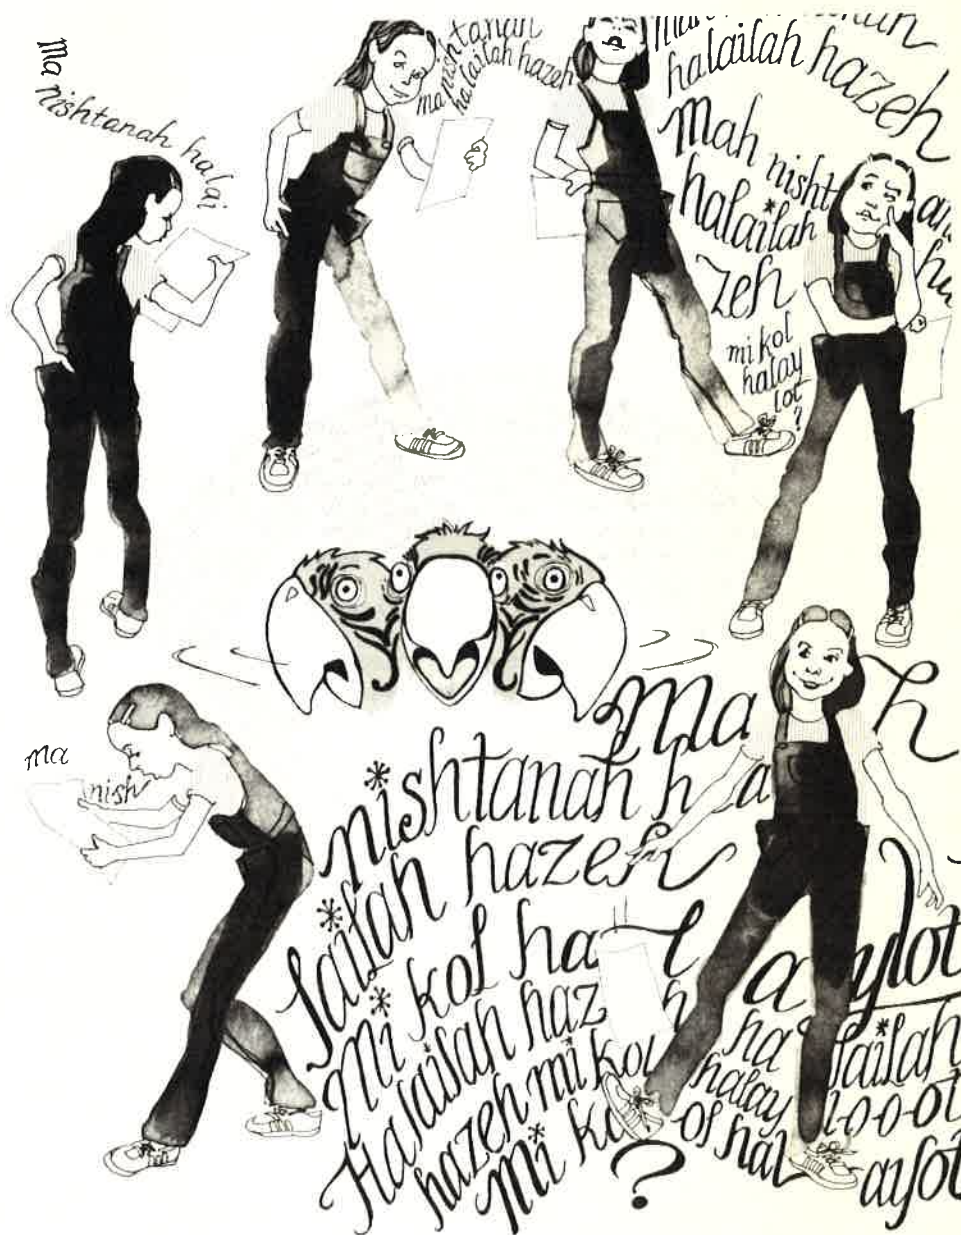 Ma
nishtanah halai
ma nishtanah
halailah hazeh
halailah hazeh
Mah nisht
halailah
zeh
mi kol
halay
lot
?
ma
nish
Mah
nishtanah ha
lailah hazeh
Mi kol hal aylot
Halailah hazeh halailah
hazeh mi kol halay l-o-o-ot
Mi kol of hal aylot
?